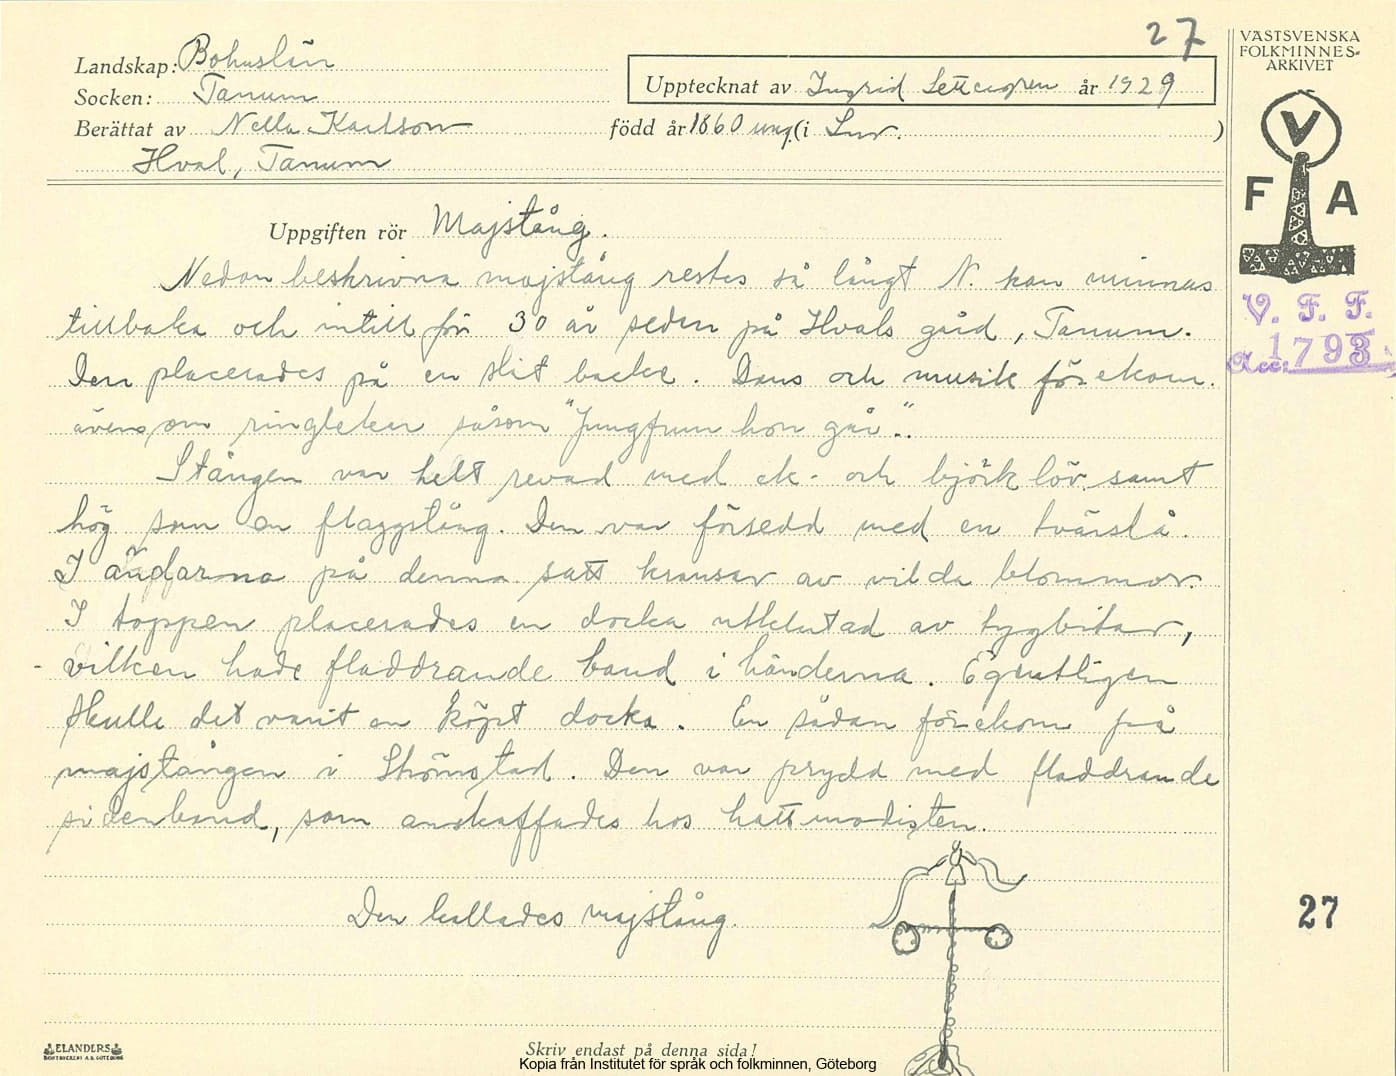 27
VÄSTSVENSKA
FOLKMINNES-
ARKIVET
Landskap: Bohuslän
Upptecknat av Ingrid Settergren år 1929
Socken: Tanum
Berättat av Nella Karlson född år 1860 ung. (i Lur. )
Hval, Tanum
V
F A
Uppgiften rör Majstång.
Nedan beskrivna majstång restes så långt N. kan minnas
tillbaka och intill för 30 år sedan på Hvals gård, Tanum.
V. F. F.
Acc: 1793
Den placerades på en slät backe. Dans och musik förekom.
även som ringlekar såsom "Jungfrun hon går".
Stången var helt revad med ek- och björk löv. samt
hög som en flaggstång. Den var försedd med en tvärslå.
I ändarna på denna satt kransar av vilda blommor.
I toppen placerades en docka utklutad av tygbitar,
vilken hade fladdrande band i händerna. Egentligen
skulle det varit en köpt docka. En sådan förekom på
majstången i Strömstad. Den var prydd med fladdrande
sidenband, som anskaffades hos hattmodisten.
Den kallades majstång.
27
ELANDERS
Skriv endast på denna sida!
Kopia från Institutet för språk och folkminnen, Göteborg